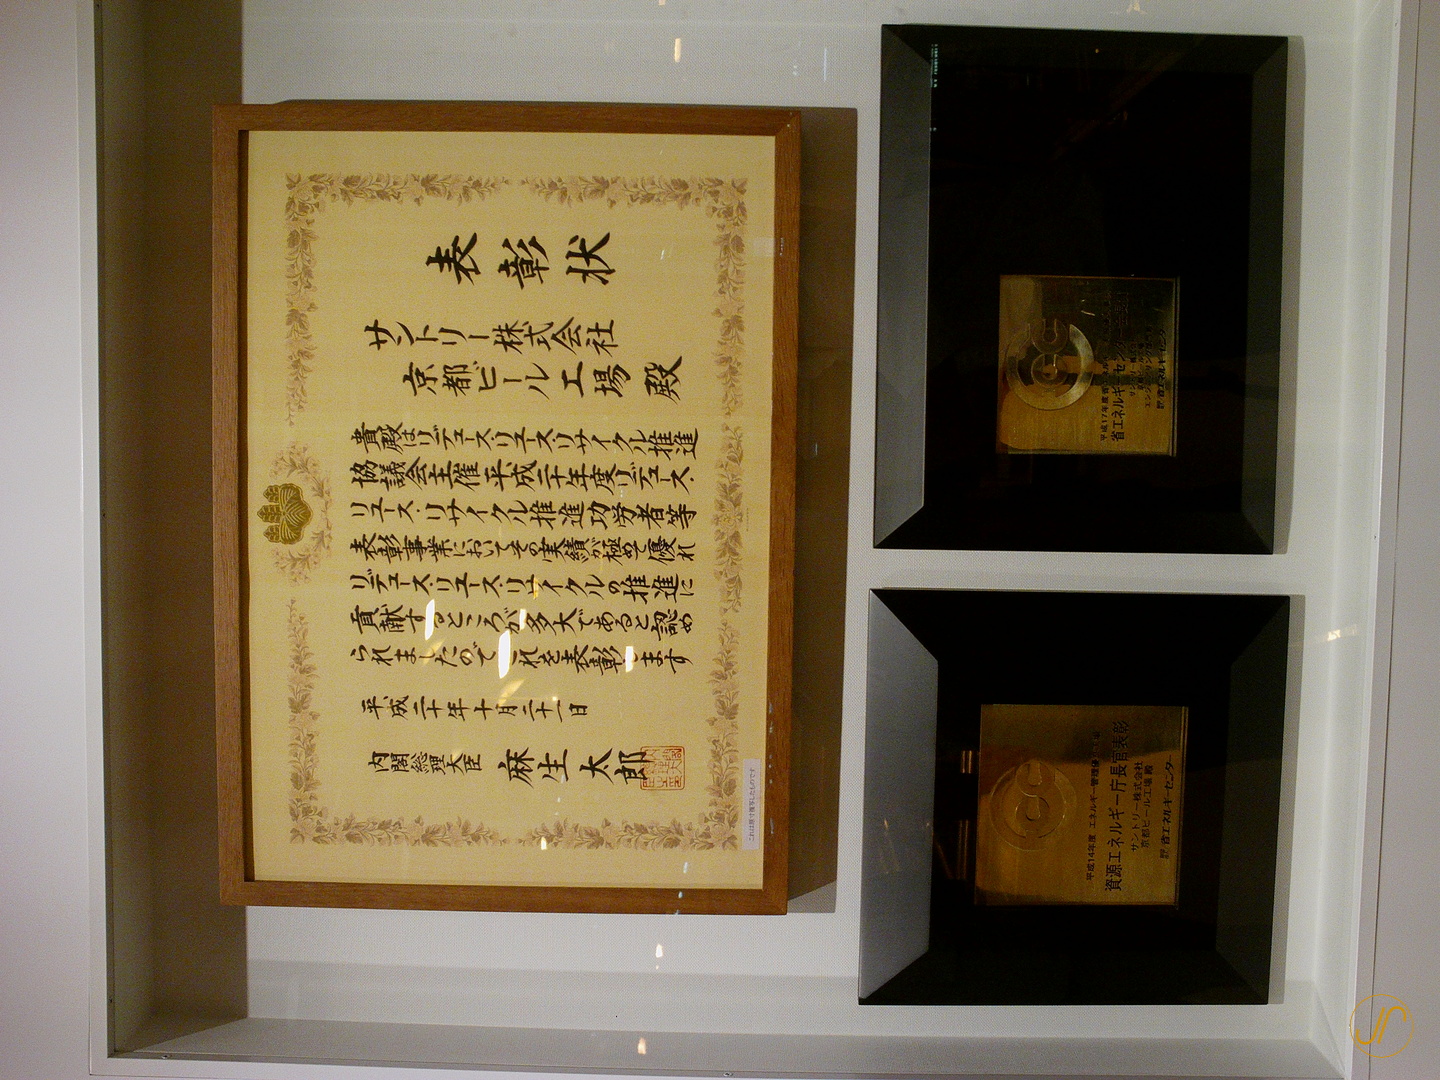 表彰状
サントリー株式会社
京都ビール工場 殿
貴殿はリデュース・リユース・リサイクル推進
協議会主催平成二十年度リデュース・
リユース・リサイクル推進功労者等
表彰事業においてその実績が極めて優れ
リデュース・リユース・リサイクルの推進に
貢献するところが多大であると認め
られましたのでこれを表彰します
平成二十年十月二十一日
内閣総理大臣 麻生太郎
これは原寸複写したものです
平成17年度
省エネルギーセンター
省エネルギーセンター
平成14年度 エネルギー管理優
資源エネルギー庁長官表彰
サントリー株式会社
京都ビール工場殿
省エネルギーセンター